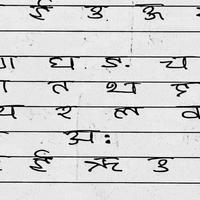 ई उ ऊ
ग घ ङ च
त थ द
य र ल व
अः
ई ऋ उ